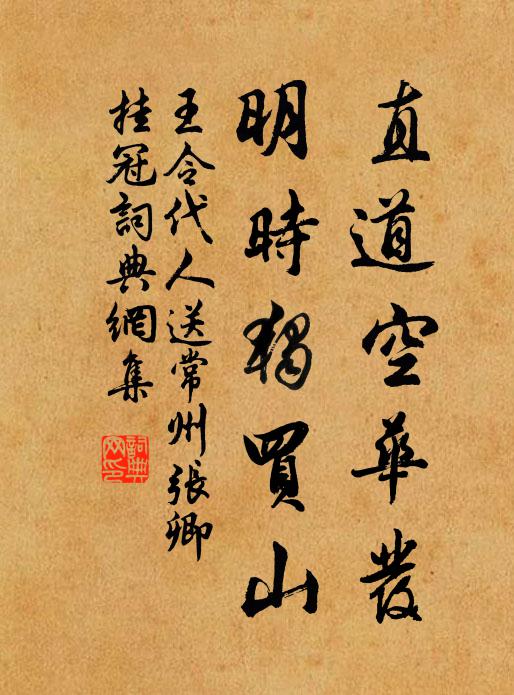 直道空華發
明時獨買山
王令代人送常州張卿
挂冠詞典網集
詞典
网印